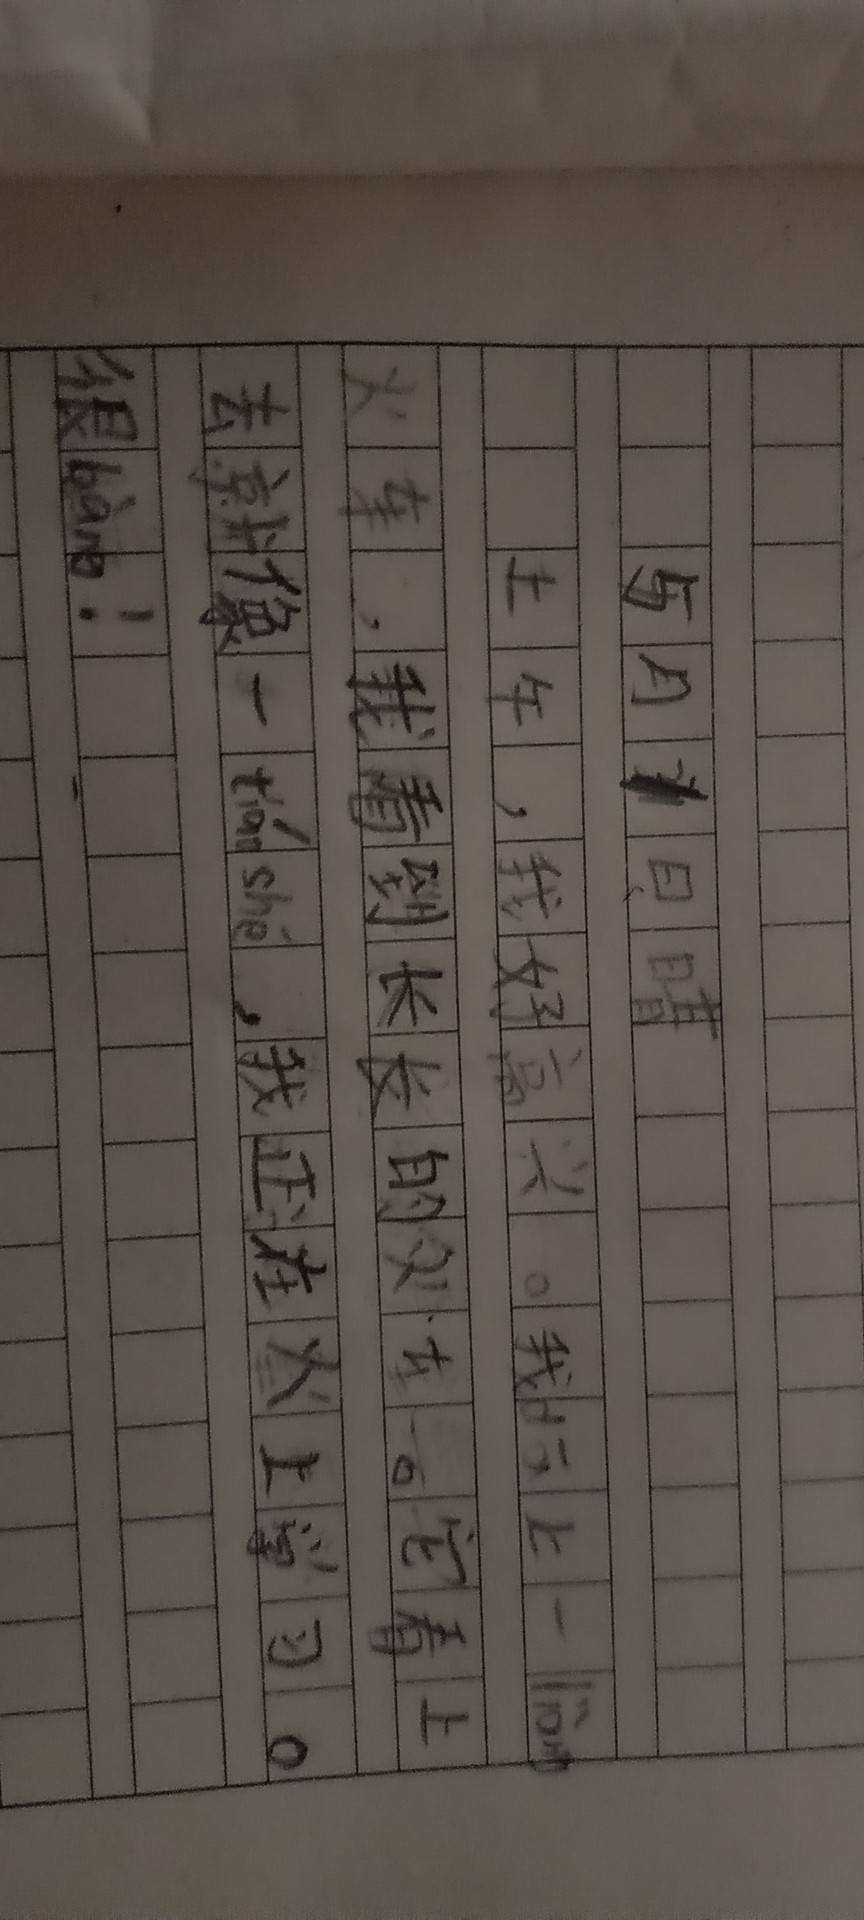 5月1日晴
上午，我好高兴。我上一liàng
火车，我看到长长的火车。它看上
去就像一tián shé，我正在火上学习。
很bàng！